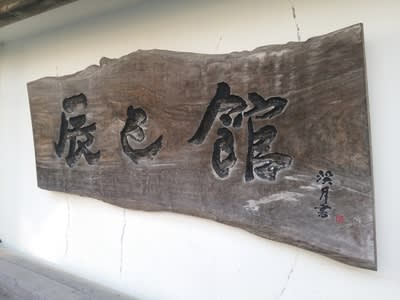 辰巳館
渓月書